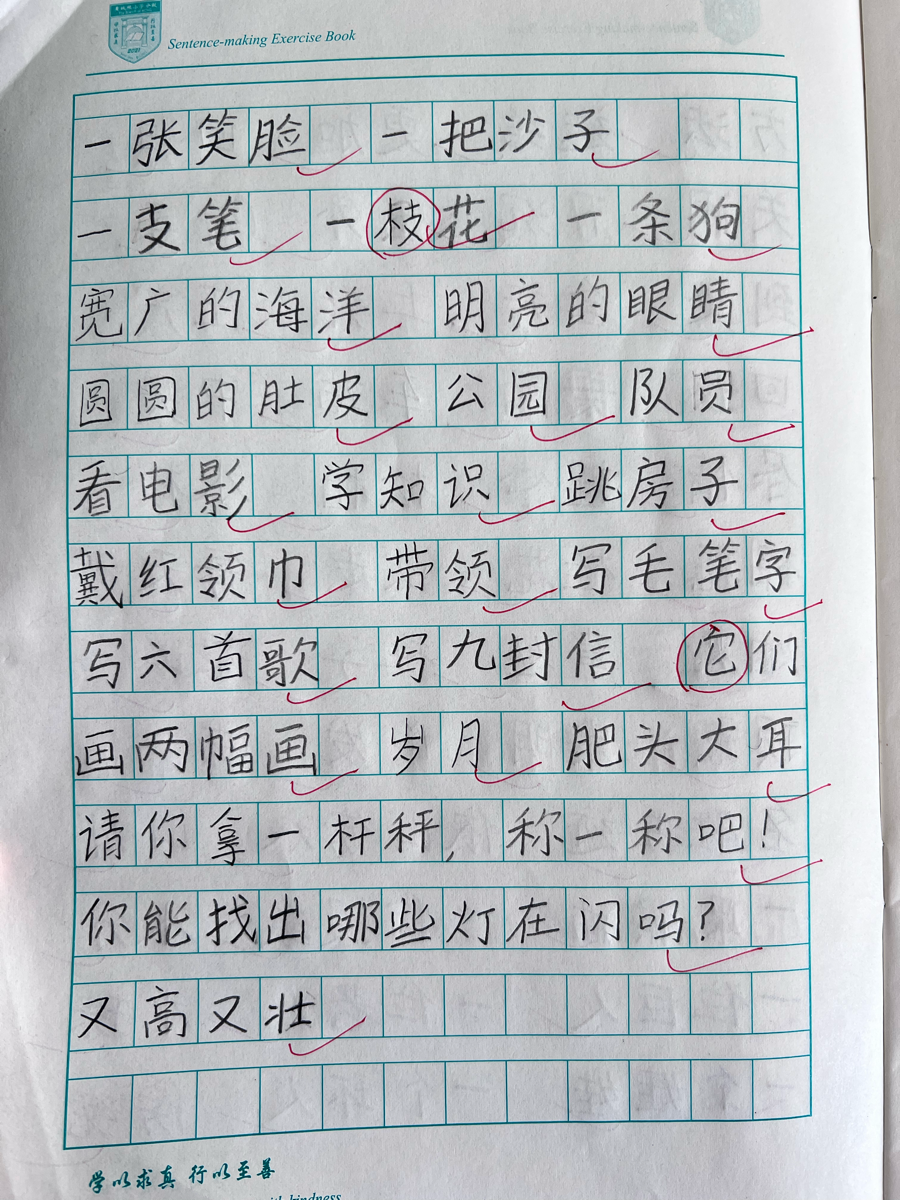 Sentence-making Exercise Book
一张笑脸 一把沙子
一支笔 一枝花 一条狗
宽广的海洋 明亮的眼睛
圆圆的肚皮 公园 队员
看电影 学知识 跳房子
戴红领巾 带领 写毛笔字
写六首歌 写九封信 它们
画两幅画 岁月 肥头大耳
请你拿一杆秤,称一称吧!
你能找出哪些灯在闪吗?
又高又壮
学以求真 行以至善
with kindness